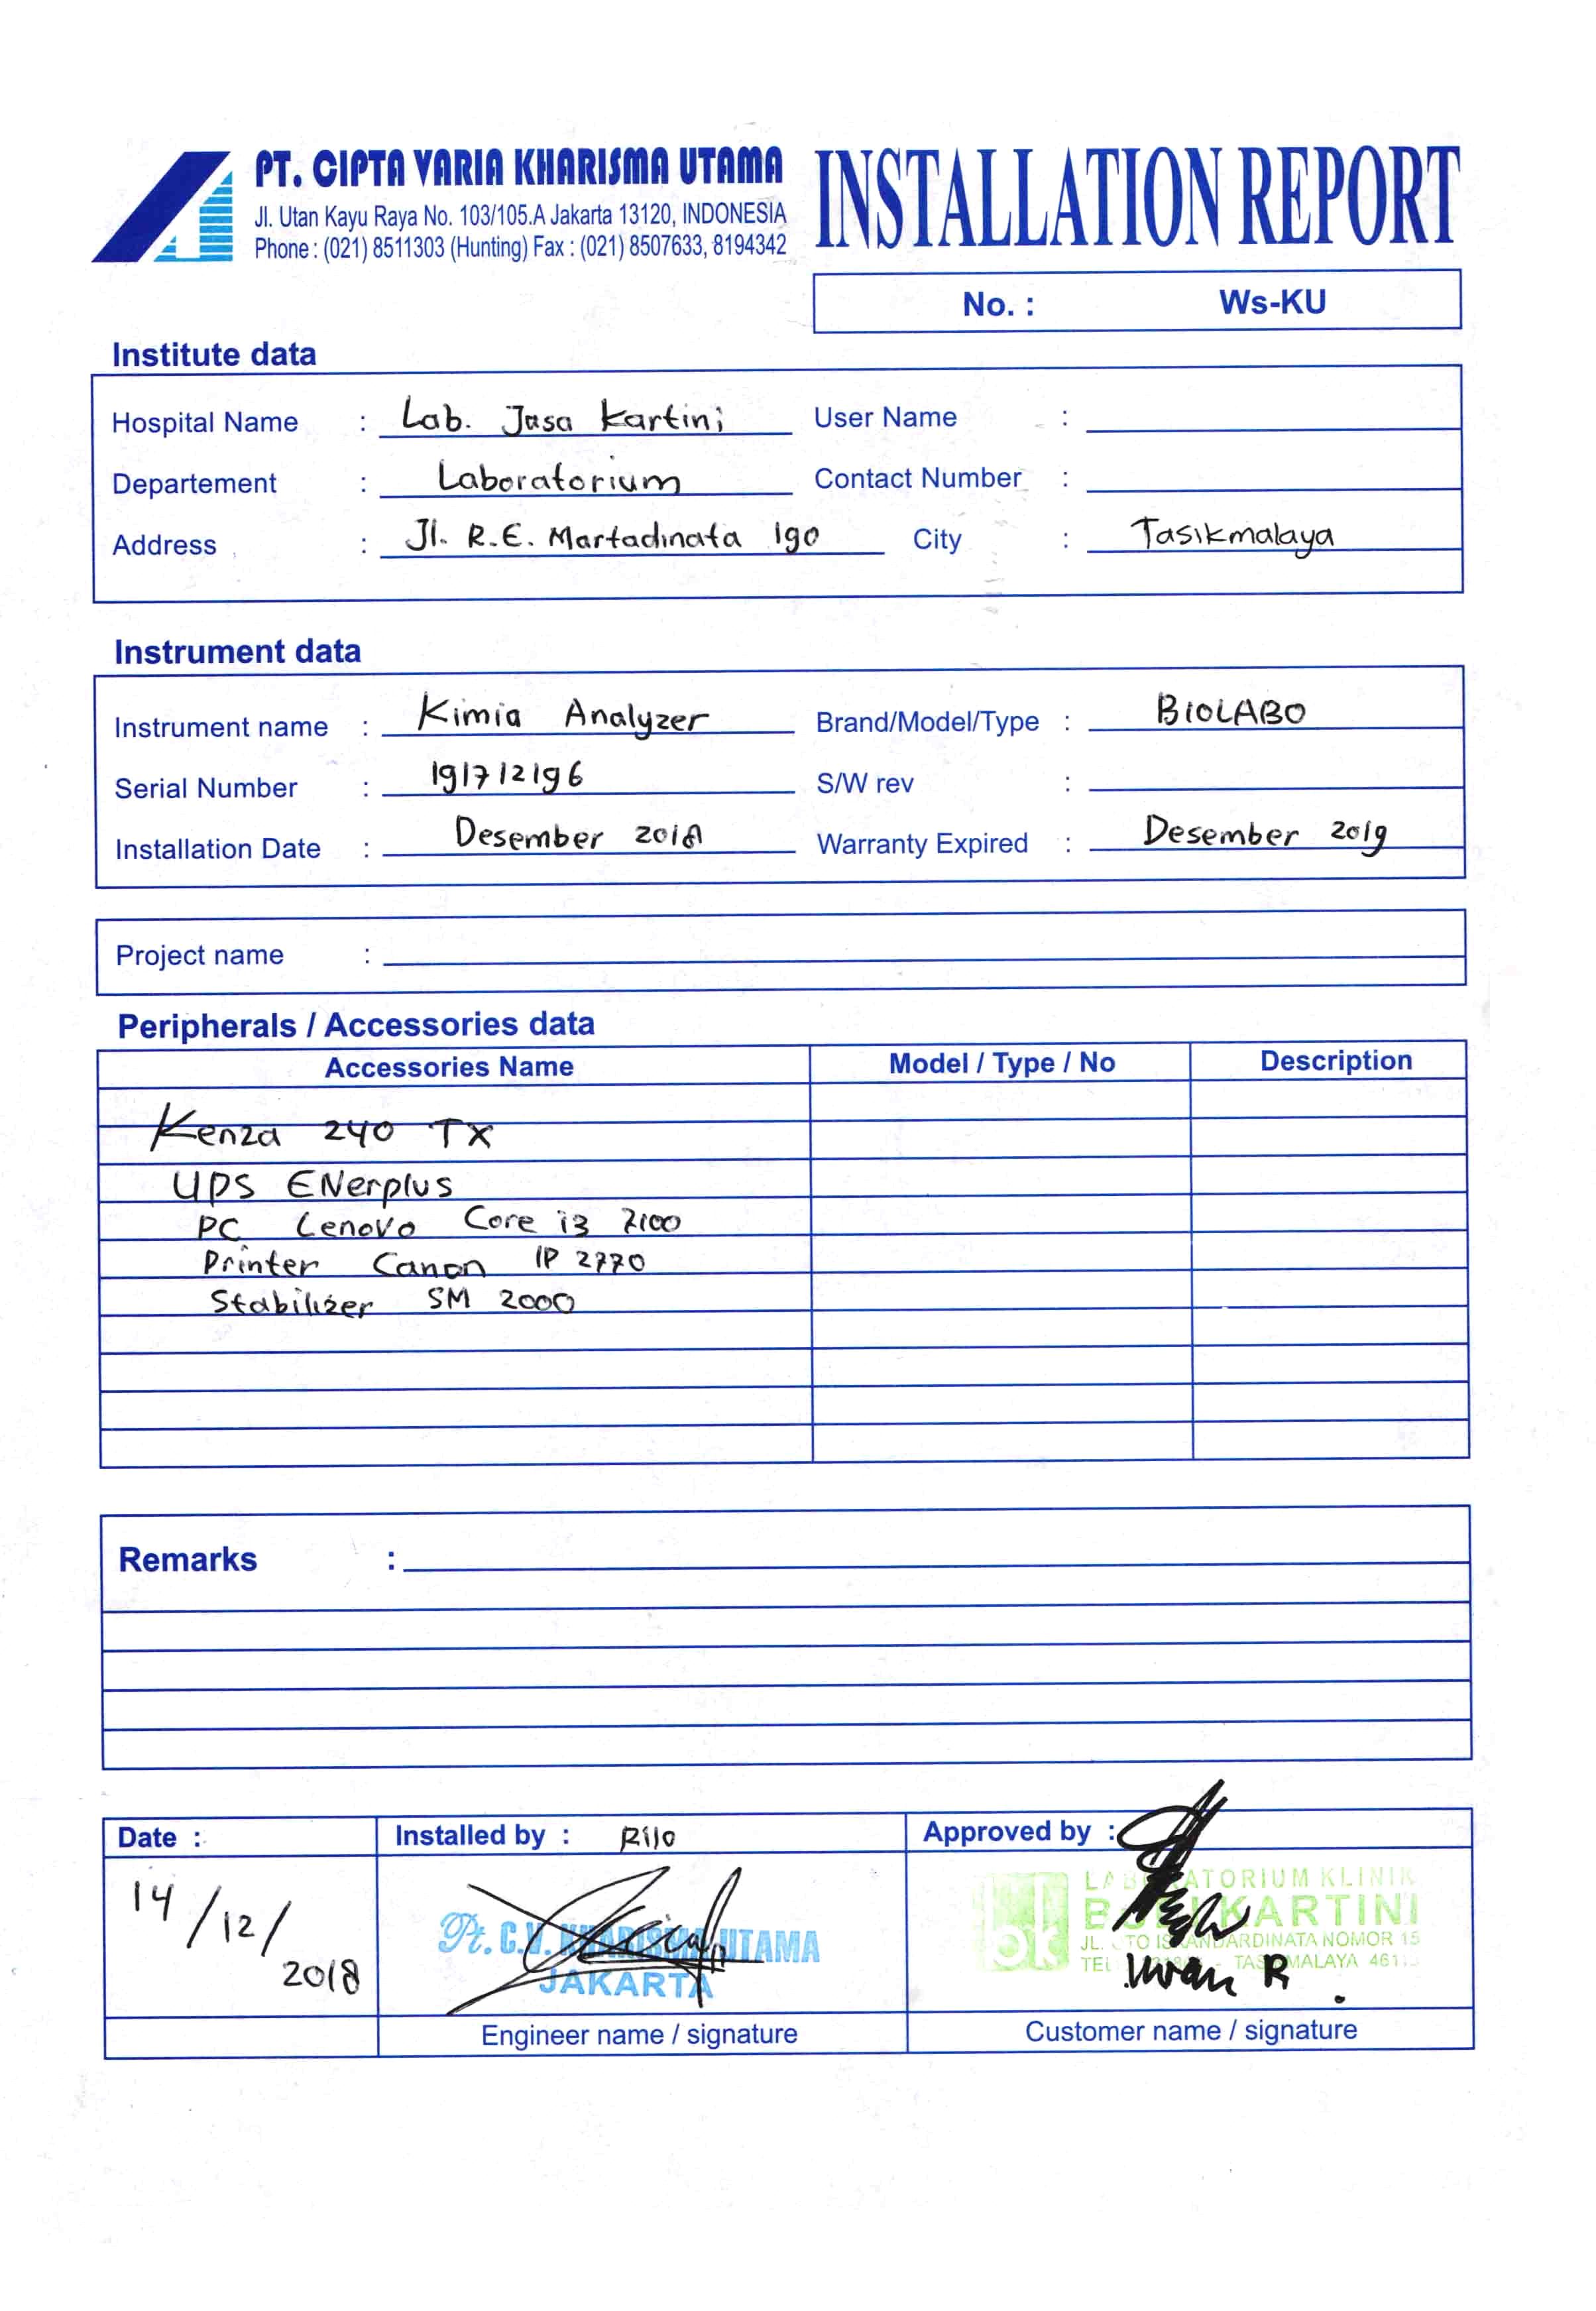 PT. CIPTA VARIA KHARISMA UTAMA
Jl. Utan Kayu Raya No. 103/105.A Jakarta 13120, INDONESIA
Phone : (021) 8511303 (Hunting) Fax : (021) 8507633, 8194342
INSTALLATION REPORT
No. : Ws-KU
Institute data
Hospital Name : Lab. Jasa Kartini User Name :
Departement : Laboratorium Contact Number :
Address : Jl. R.E. Martadinata 190 City : Tasikmalaya
Instrument data
Instrument name : Kimia Analyzer Brand/Model/Type : BIOLABO
Serial Number : 191712196 S/W rev :
Installation Date : Desember 2018 Warranty Expired : Desember 2019
Project name :
Peripherals / Accessories data
Accessories Name Model / Type / No Description
Kenza 240 TX
UPS ENerplus
PC Lenovo Core i3 7100
Printer Canon IP 2770
Stabilizer SM 2000
Remarks :
Date : Installed by : Rilo Approved by :
14/12/2018
Pt. C.V. KHARISMA UTAMA
JAKARTA
LABORATORIUM KLINIK
KARTINI
JL. OTO ISKANDARDINATA NOMOR 15
TASIKMALAYA
Iwan R.
Engineer name / signature Customer name / signature